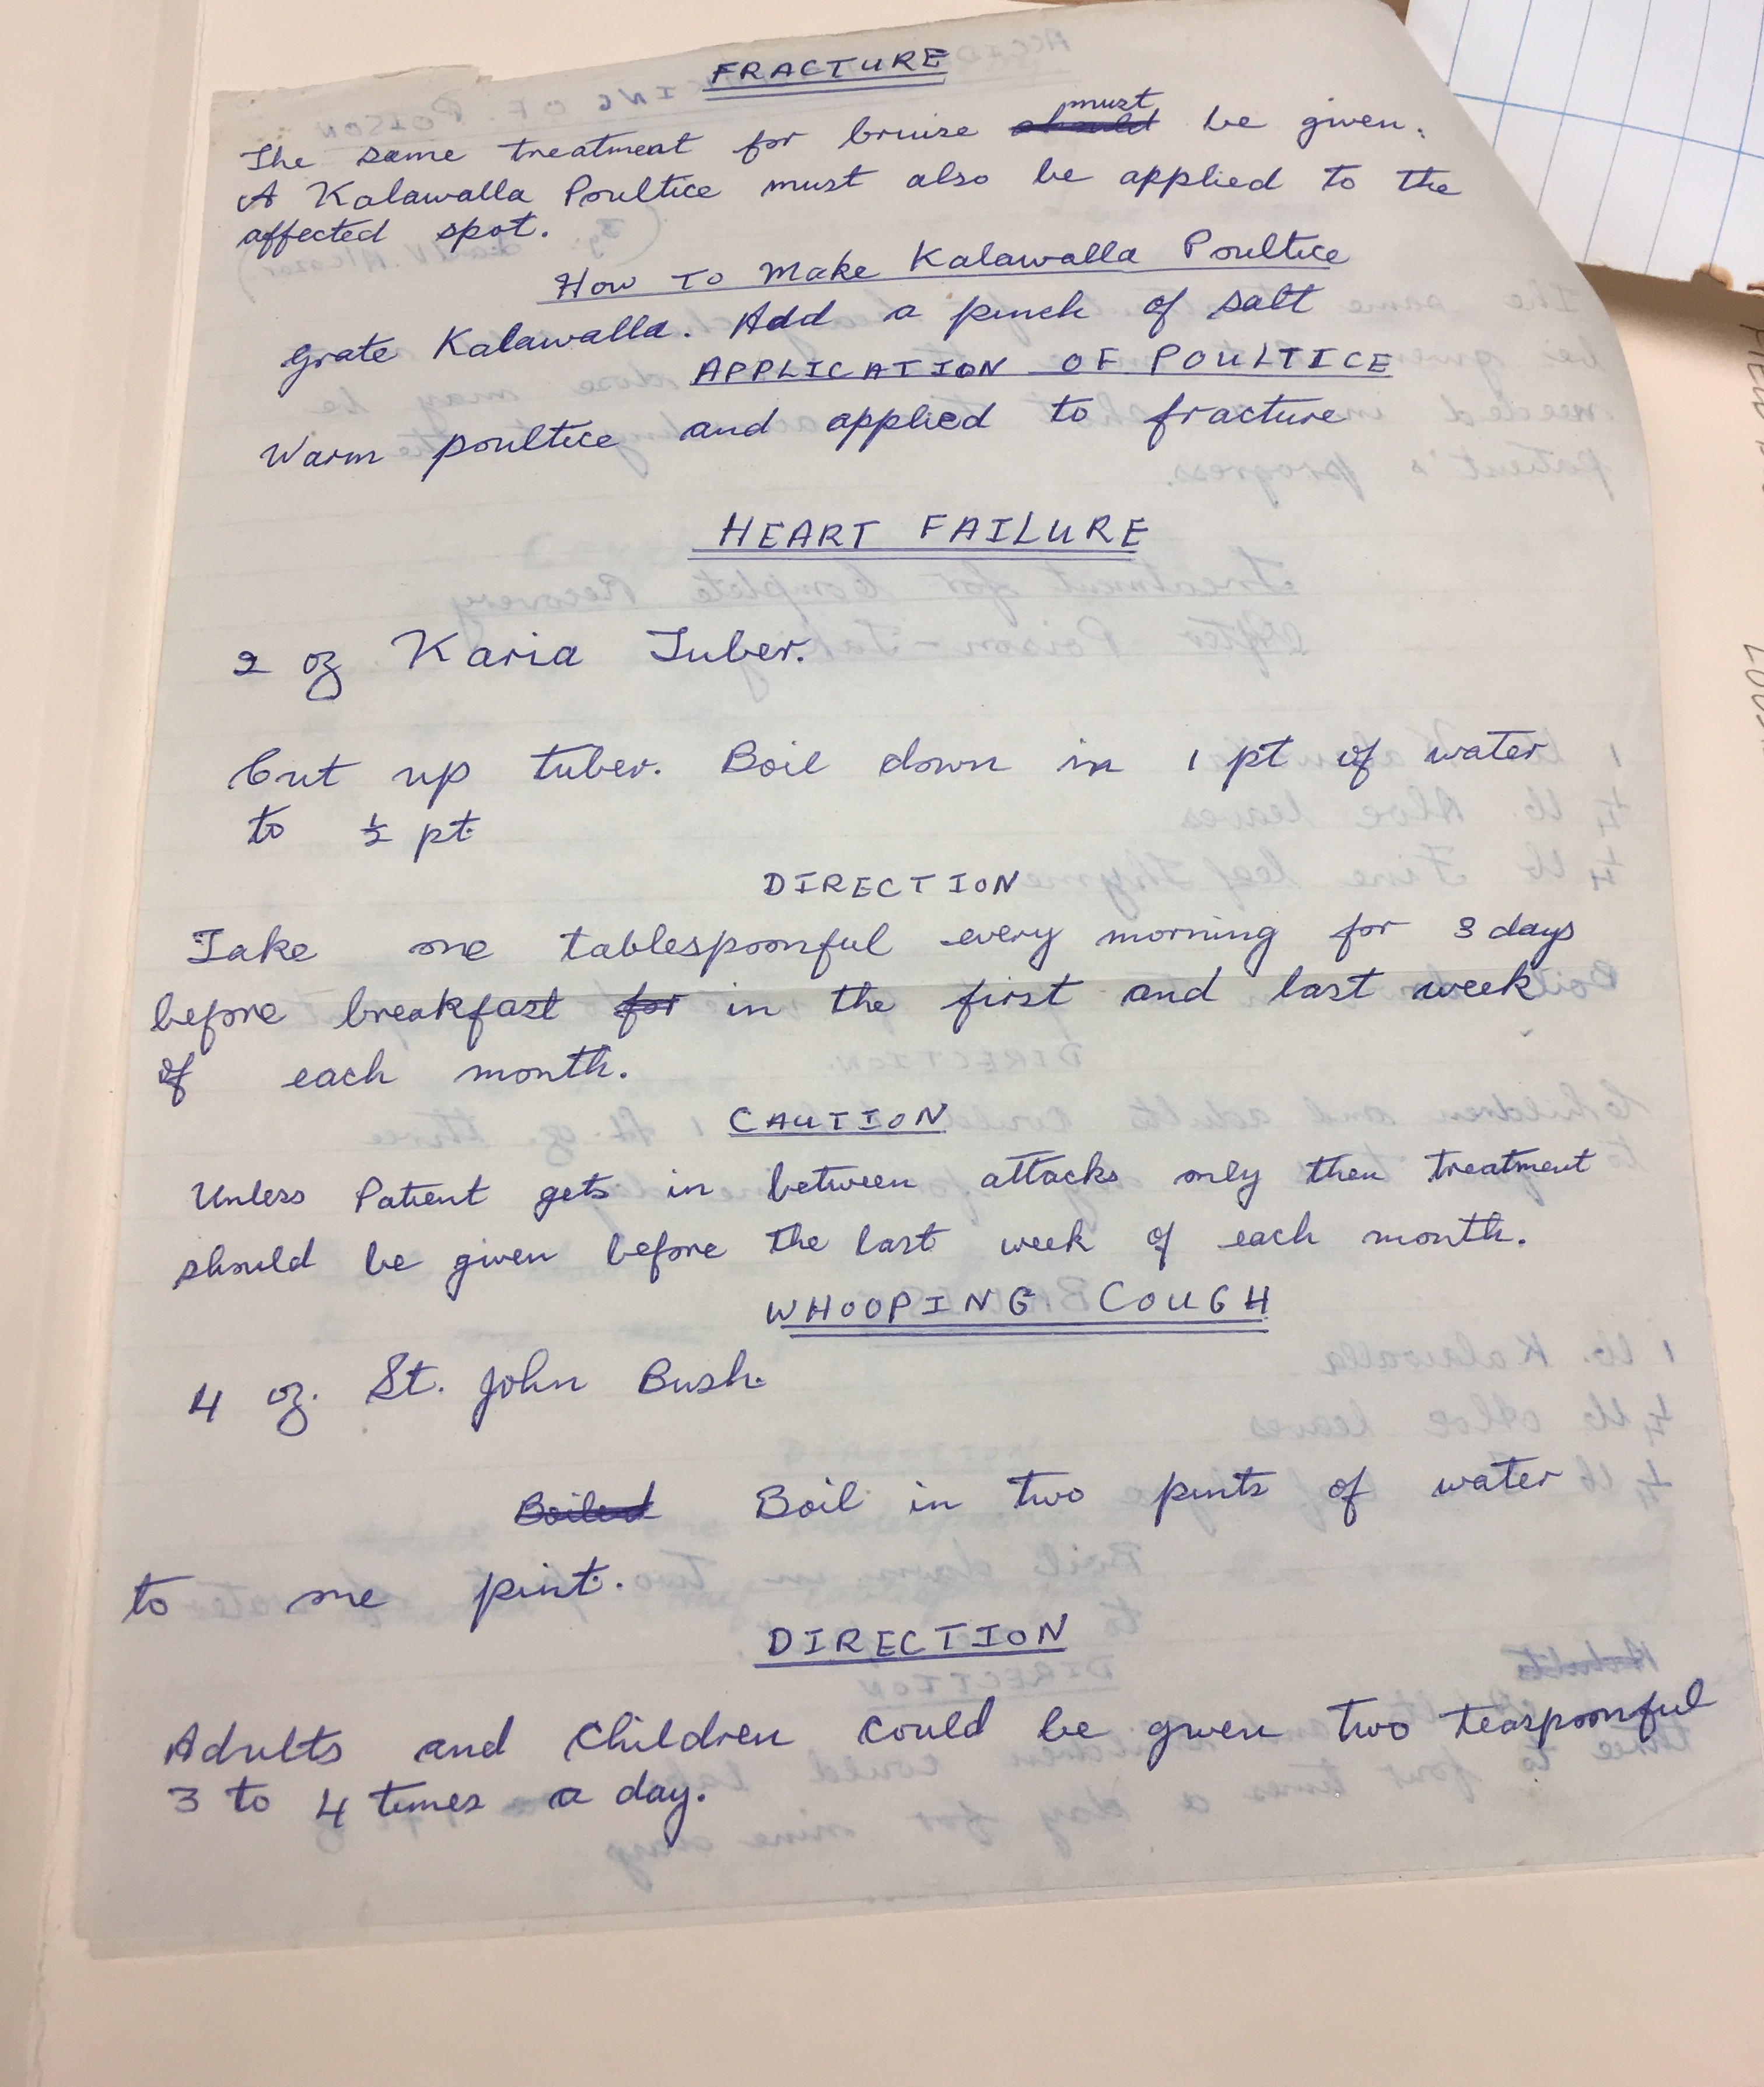 FRACTURE
The same treatment for bruise should must be given.
A Kalawalla Poultice must also be applied to the
affected spot.
How To Make Kalawalla Poultice
grate Kalawalla. Add a pinch of salt
APPLICATION OF POULTICE
Warm poultice and applied to fracture
HEART FAILURE
2 oz Karia Tuber.
Cut up tuber. Boil down in 1 pt of water
to ½ pt.
DIRECTION
Take one tablespoonful every morning for 3 days
before breakfast for in the first and last week
of each month.
CAUTION
Unless Patient gets in between attacks only then treatment
should be given before the last week of each month.
WHOOPING COUGH
4 oz. St. John Bush.
Boiled Boil in two pints of water
to one pint.
DIRECTION
Adults and Children could be given two teaspoonful
3 to 4 times a day.